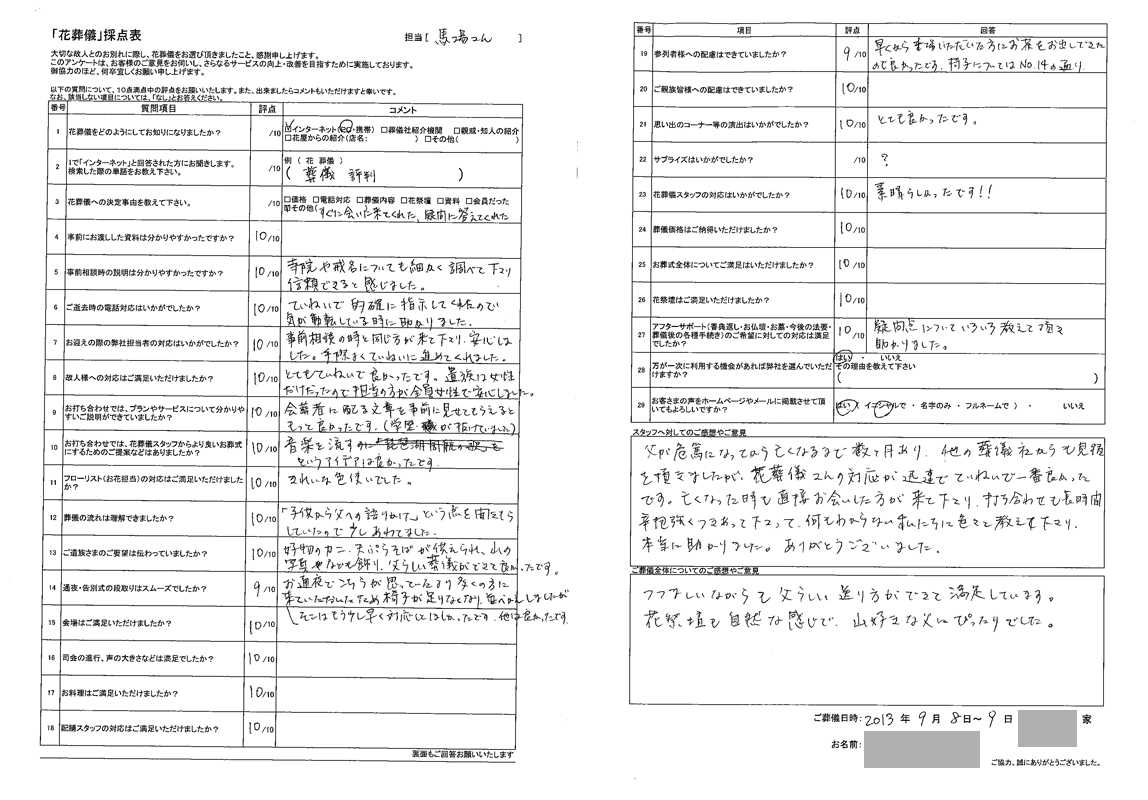 「花葬儀」採点表
担当［ 馬場さん ］
大切な故人とのお別れに際し、花葬儀をお選び頂きましたこと、感謝申し上げます。
このアンケートは、お客様のご意見をお伺いし、さらなるサービスの向上・改善を目指すために実施しております。
御協力のほど、何卒宜しくお願い申し上げます。
以下の質問について、10点満点中の評点をお願いいたします。また、出来ましたらコメントもいただけますと幸いです。
なお、該当しない項目については、「なし」とお答えください。
番号 質問項目 評点 コメント
1 花葬儀をどのようにしてお知りになりましたか？ /10 ☑インターネット(PC・携帯) □葬儀社紹介機関 □親戚・知人の紹介
□花屋からの紹介(店名: ) □その他( )
2 1で「インターネット」と回答された方にお聞きします。
検索した際の単語をお教え下さい。 /10 例 ( 花 葬儀 )
( 葬儀 評判 )
3 花葬儀への決定事由を教えて下さい。 /10 □価格 □電話対応 □葬儀内容 □花祭壇 □資料 □会員だった
☑その他(すぐに会いに来てくれた、疑問に答えてくれた
4 事前にお渡しした資料は分かりやすかったですか？ 10/10
5 事前相談時の説明は分かりやすかったですか？ 10/10 寺院や戒名についても細かく調べて下さり
信頼できると感じました。
6 ご逝去時の電話対応はいかがでしたか？ 10/10 ていねいで的確に指示してくれたので
気が動転している時に助かりました。
7 お迎えの際の弊社担当者の対応はいかがでしたか？ 10/10 事前相談の時と同じ方が来て下さり、安心しま
した。手際よくていねいに進めてくれました。
8 故人様への対応はご満足いただけましたか？ 10/10 とてもていねいで良かったです。遺族は女性
だけだったので担当の方が全員女性で安心しました。
9 お打ち合わせでは、プランやサービスについて分かりや
すいご説明ができていましたか？ 10/10 会葬者に配る文章を事前に見せてもらえると
もっと良かったです。(学歴・職が抜けていました)
10 お打ち合わせでは、花葬儀スタッフからより良いお葬式
にするためのご提案などはありましたか？ 10/10 音楽を流すのに
というアイデアは良かったです。
11 フローリスト(お花担当)の対応はご満足いただけました
か？ 10/10 きれいな色使いでした。
12 葬儀の流れは理解できましたか？ 10/10 「子供から父への語りかけ」という点を
していたので少しあわてました。
13 ご遺族さまのご要望は伝わっていましたか？ 10/10 好物のカニ、天ぷらそばが供えられ、山の
写真なども飾り、父らしい葬儀ができて良かったです。
14 通夜・告別式の段取りはスムーズでしたか？ 9/10 お通夜でこちらが思っていたより多くの方に
来ていただいたため椅子が足りなくなり、並べ しましたが
そこはもう少し早く対応してほしかったです。他は良かったです。
15 会場はご満足いただけましたか？ 10/10
16 司会の進行、声の大きさなどは満足でしたか？ 10/10
17 お料理はご満足いただけましたか？ 10/10
18 配膳スタッフの対応はご満足いただけましたか？ 10/10
裏面もご回答お願いいたします
番号 項目 評点 回答
19 参列者様への配慮はできていましたか？ 9/10 早くから来場いただいた方にお茶をお出しできた
ので良かったです。椅子についてはNo.14の通り
20 ご親族皆様への配慮はできていましたか？ 10/10
21 思い出のコーナー等の演出はいかがでしたか？ 10/10 とても良かったです。
22 サプライズはいかがでしたか？ /10 ?
23 花葬儀スタッフの対応はいかがでしたか？ 10/10 素晴らしかったです!!
24 葬儀価格はご納得いただけましたか？ 10/10
25 お葬式全体についてご満足はいただけましたか？ 10/10
26 花祭壇はご満足いただけましたか？ 10/10
27 アフターサポート(香典返し・お仏壇・お墓・今後の法要・
葬儀後の各種手続き)のご希望に対しての対応は満足
でしたか？ 10/10 疑問点についていろいろ教えて頂き
助かりました。
28 万が一次に利用する機会があれば弊社を選んでいただ
けますか？ はい ・ いいえ
その理由を教えて下さい
( )
29 お客さまの声をホームページやメールに掲載させて頂
いてもよろしいですか？ はい ( イニシャルで ・ 名字のみ ・ フルネームで ) ・ いいえ
スタッフへ対してのご感想やご意見
父が危篤になってから亡くなるまで数ヶ月あり、他の葬儀社からも見積
を頂きましたが、花葬儀さんの対応が迅速でていねいで一番良かった
です。亡くなった時も直接お会いした方が来て下さり、打ち合わせも長時間
辛抱強くつきあって下さって、何もわからない私たちに色々と教えて下さり、
本当に助かりました。ありがとうございました。
ご葬儀全体についてのご感想やご意見
つつましいながらも父らしい送り方ができて満足しています。
花祭壇も自然な感じで、山好きな父にぴったりでした。
ご葬儀日時：2013 年 9 月 8 日～ 9 日 家
お名前：
ご協力、誠にありがとうございました。